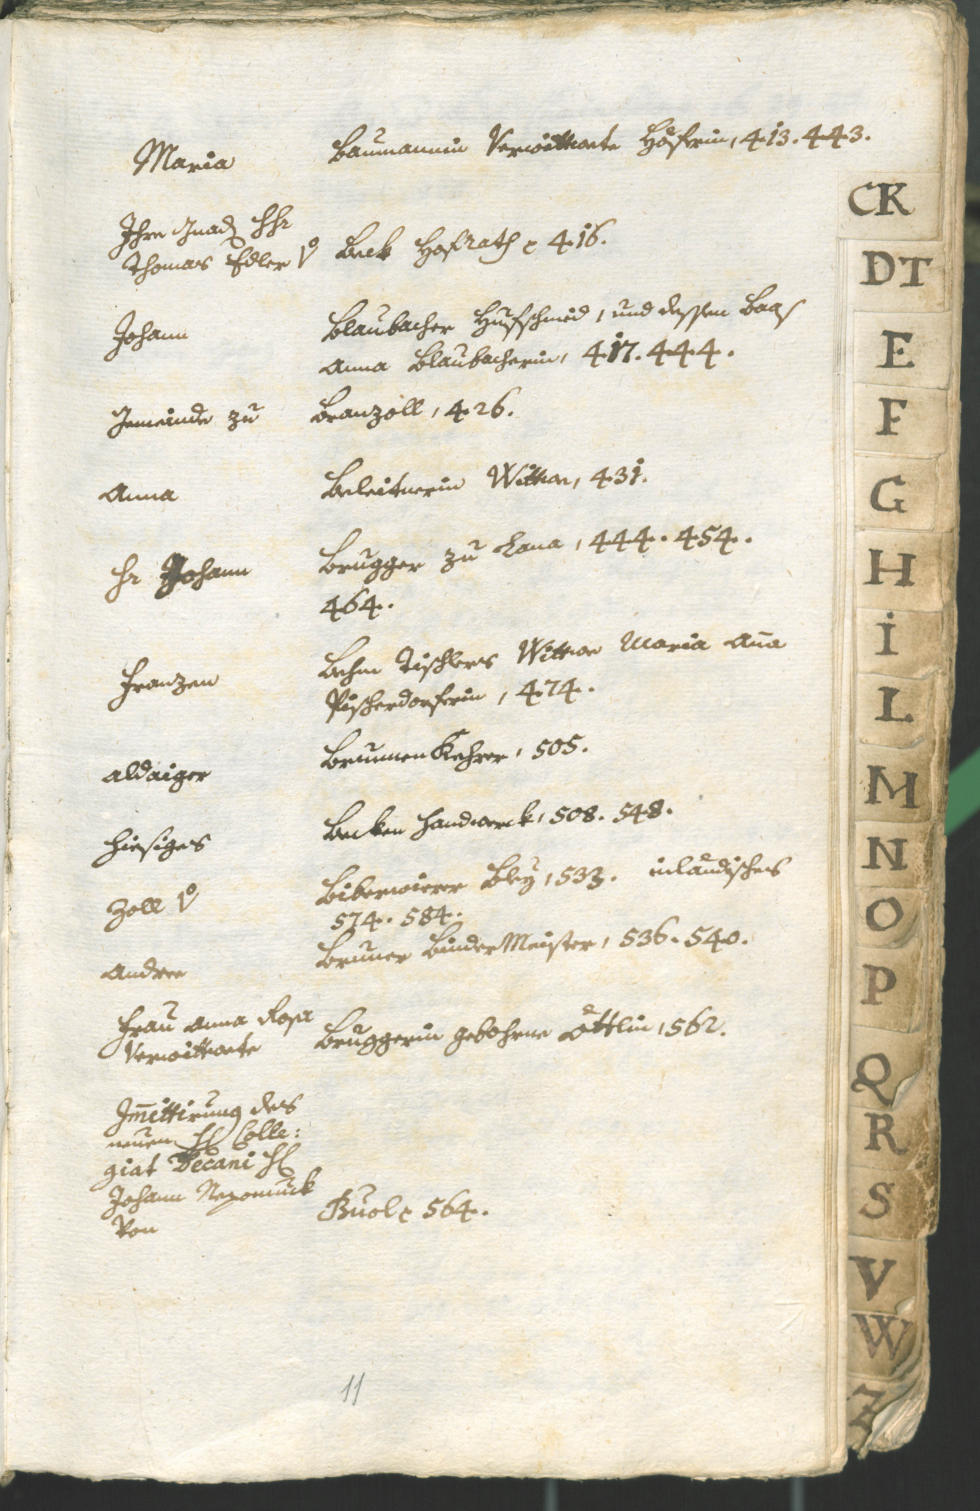 Maria Baumannin Verwittwete Höfnerin, 413. 443.
Ihro Gnad. HHr
Thomas Edler V. Beck Hofrath e 416.
Johann Blaubacher Hufschmid, und dessen
Anna Blaubacherin, 417. 444.
Gemeinde zu Branzoll, 426.
Anna Beleitnerin Wittwe, 431.
Hr Johann Brugger zu Lana, 444. 454.
464.
Franzen Behm Tischlers Wittwe Maria Aña
Pischerdorferin, 474.
aldaiger Brunnen Kehrer, 505.
hiesiges Becken Handwerck, 508. 548.
Zoll V. Biberwierer Bley, 533. inländisches
574. 584.
Andree Bruner Binder Meister, 536. 540.
Frau Anna Rosa
Verwittwete Bruggerin gebohrne Öttlin, 562.
Im̃ittirung des
neuen H Colle:
giat Decani H
Johann Nepomuck
Von Buol e 564.
11
CK
DT
E
F
G
H
I
L
M
N
O
P
Q
R
S
V
W
Z